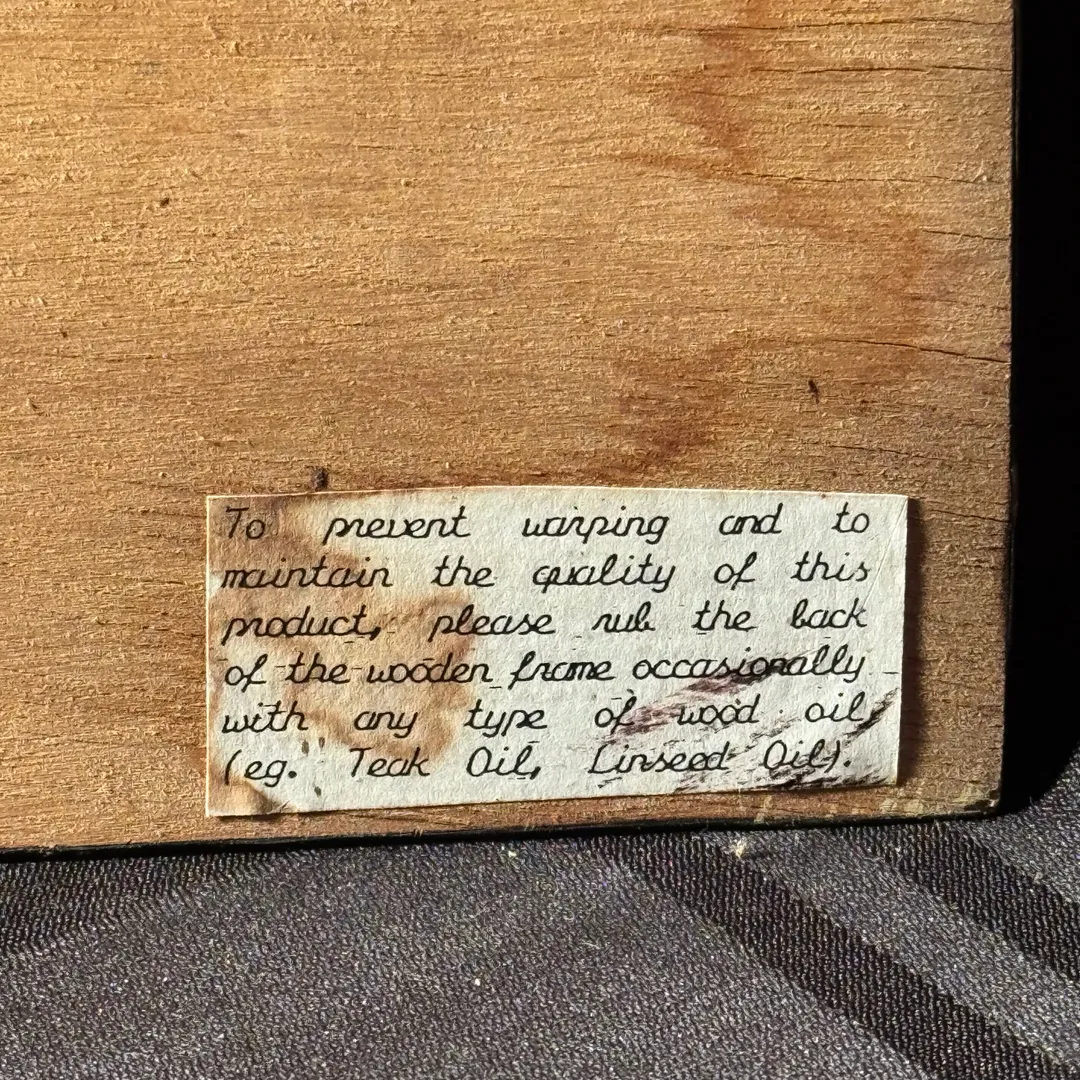 To prevent warping and to
maintain the quality of this
product, please rub the back
of the wooden frame occasionally
with any type of wood oil,
(eg. Teak Oil, Linseed Oil).